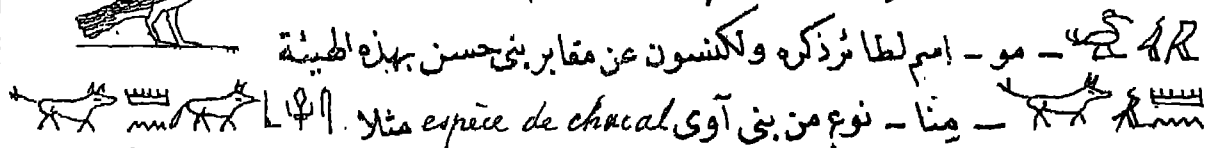 ـ مو ـ إسم لطائر ذكره ولكنسون عن مقابر بنى حسن بهذه الهيئة
ـ مِنَا ـ نوع من بنى آوى espèce de chacal مثلا.